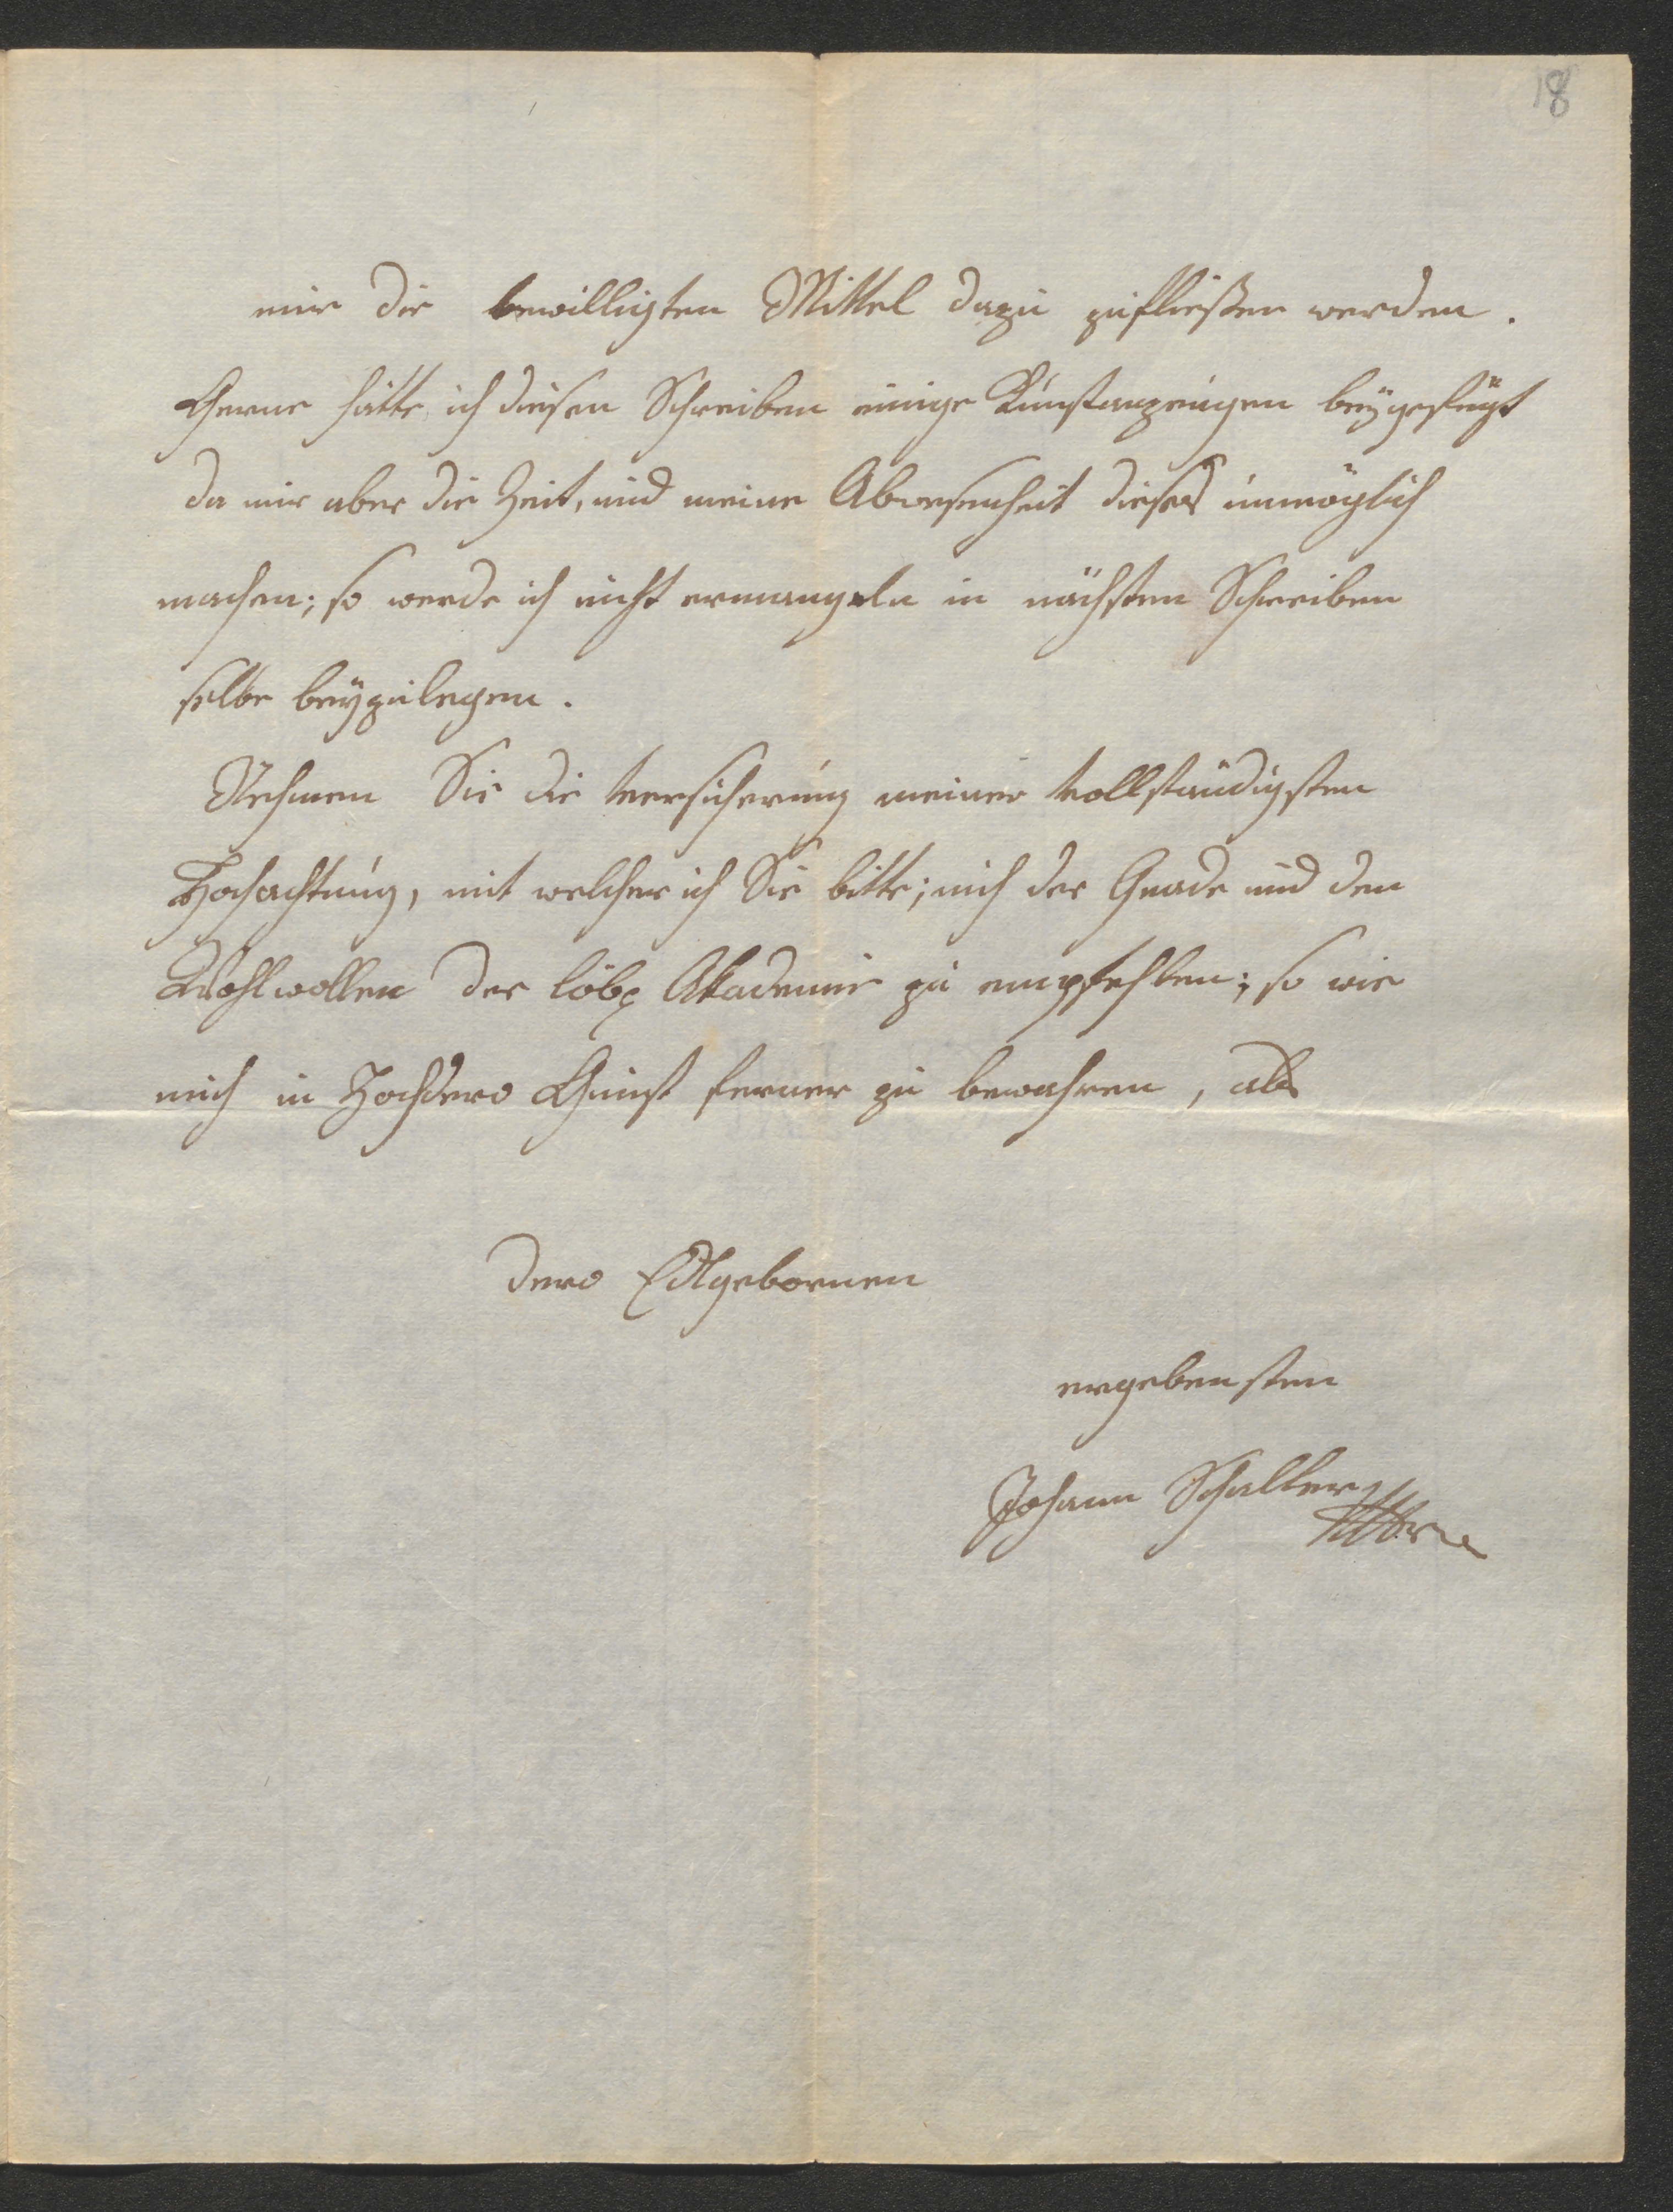 18
mir die bewilligten Mittel dazu zufließen werden.
Gerne hätte ich diesen Schreiben einige Kunstanzeigen beygefügt
da mir aber die Zeit, und meine Abwesenheit dieses unmöglich
machen; so werde ich nicht ermangeln in nächsten Schreiben
selbe beyzulegen.
Nehmen Sie die Versicherung meiner vollständigsten
Hochachtung, mit welcher ich Sie bitte; mich der Gnade und dem
Wohlwollen der löbl Akademie zu empfehlen; so wie
mich in Hochdero Gunst ferner zu bewahren, als
dero Edlgebornen
ergebensten
Johann Schaller